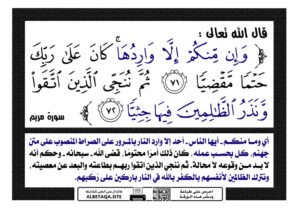 قال الله تعالى :
﴿ وَإِن مِّنكُمْ إِلَّا وَارِدُهَا ۚ كَانَ عَلَىٰ رَبِّكَ
حَتْمًا مَّقْضِيًّا ٧١ ثُمَّ نُنَجِّي الَّذِينَ اتَّقَوا
وَّنَذَرُ الظَّالِمِينَ فِيهَا جِثِيًّا ٧٢ ﴾ سورة مريم
أي وما منكم - أيها الناس - أحد إلا وارد النار بالمرور على الصراط المنصوب على متن
جهنم, كل بحسب عمله, كان ذلك أمرًا محتومًا, قضى الله - سبحانه - وحكم أنه
لا بد من وقوعه لا محالة. ثم ننجي الذين اتقوا ربهم بطاعته والبعد عن معصيته,
ونترك الظالمين لأنفسهم بالكفر بالله في النار باركين على ركبهم.
ALBETAQA.SITE
احرص على طباعة
ونشر هذه البطاقة